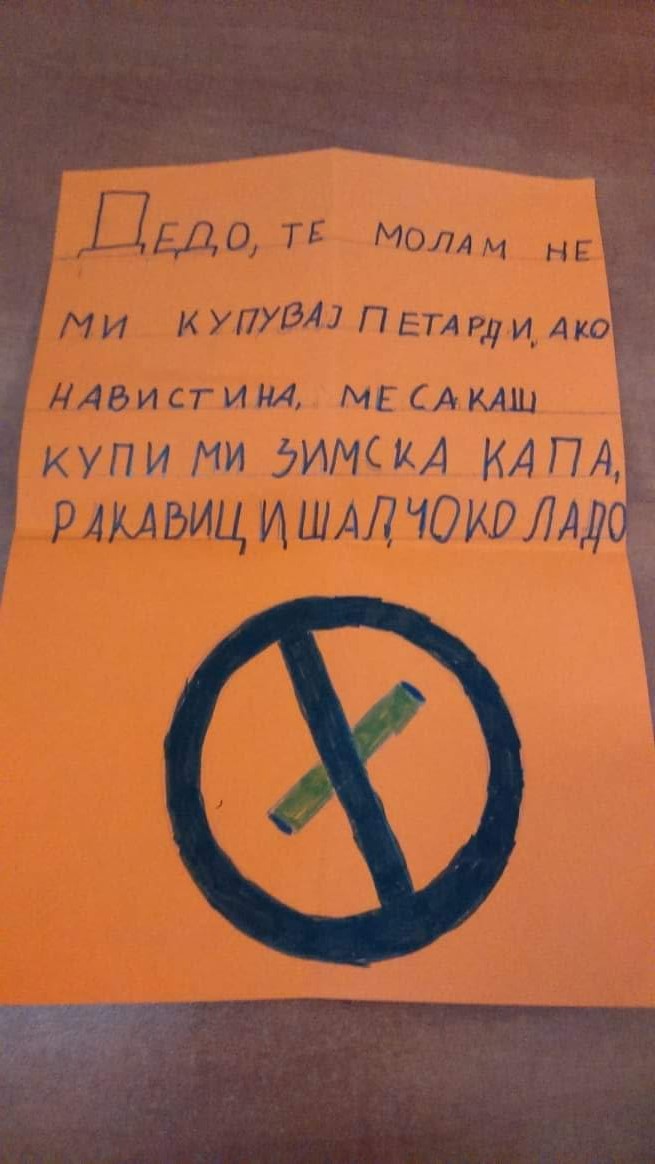 ДЕДО, ТЕ МОЛАМ НЕ
МИ КУПУВАЈ ПЕТАРДИ, АКО
НАВИСТИНА, МЕ САКАШ
КУПИ МИ ЗИМСКА КАПА,
РАКАВИЦИ, ШАЛ, ЧОКОЛАДО